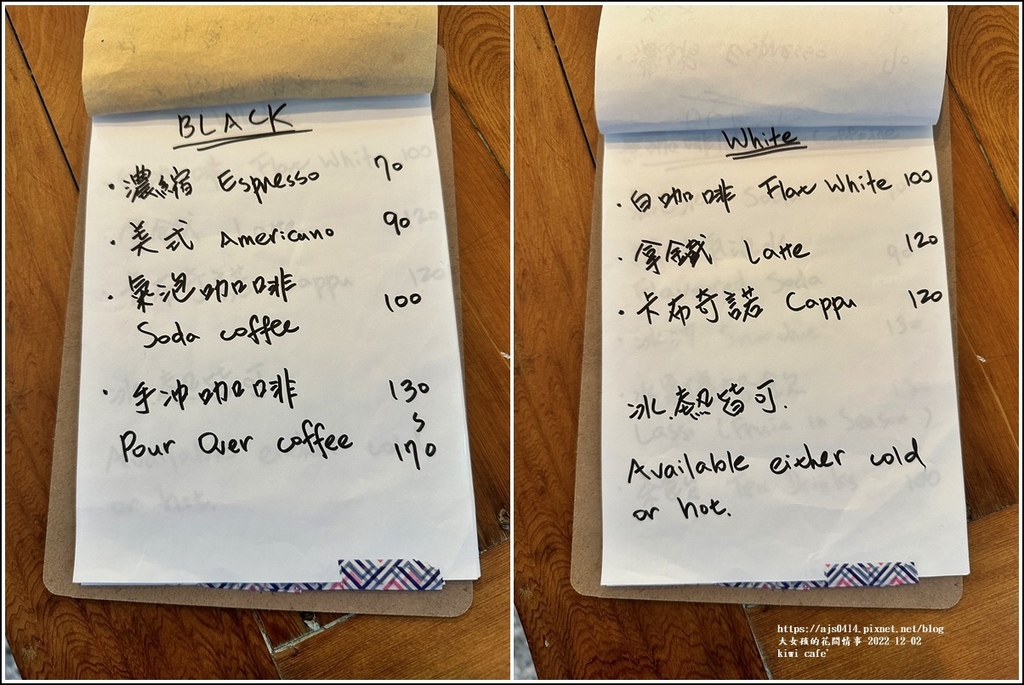 BLACK
· 濃縮 Espresso 70
· 美式 Americano 90
· 氣泡咖啡 100
Soda coffee
· 手沖咖啡 130
Pour Over coffee 170
White
· 白咖啡 Flat White 100
· 拿鐵 Latte 120
· 卡布奇諾 Cappu 120
冰熱皆可.
Available either cold
or hot.
https://ajs0414.pixnet.net/blog
大女孩的花間情事-2022-12-02
kiwi cafe'